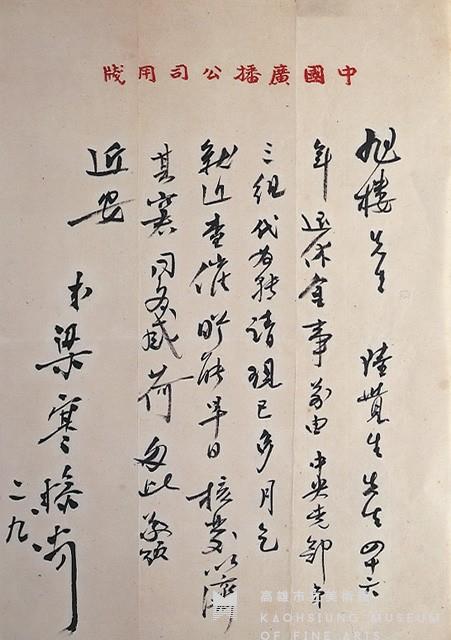 中國廣播公司用牋
旭樓先生 陸貫生先生四十六
年退休金事前由中央黨部第
三組代為轉請現已多月乞
就近查催盼能早日核發以濟
其窘同為感荷匆此敬頌
近安
弟梁寒操
二九
高雄市立美術館
KAOHSIUNG MUSEUM
OF FINE ARTS